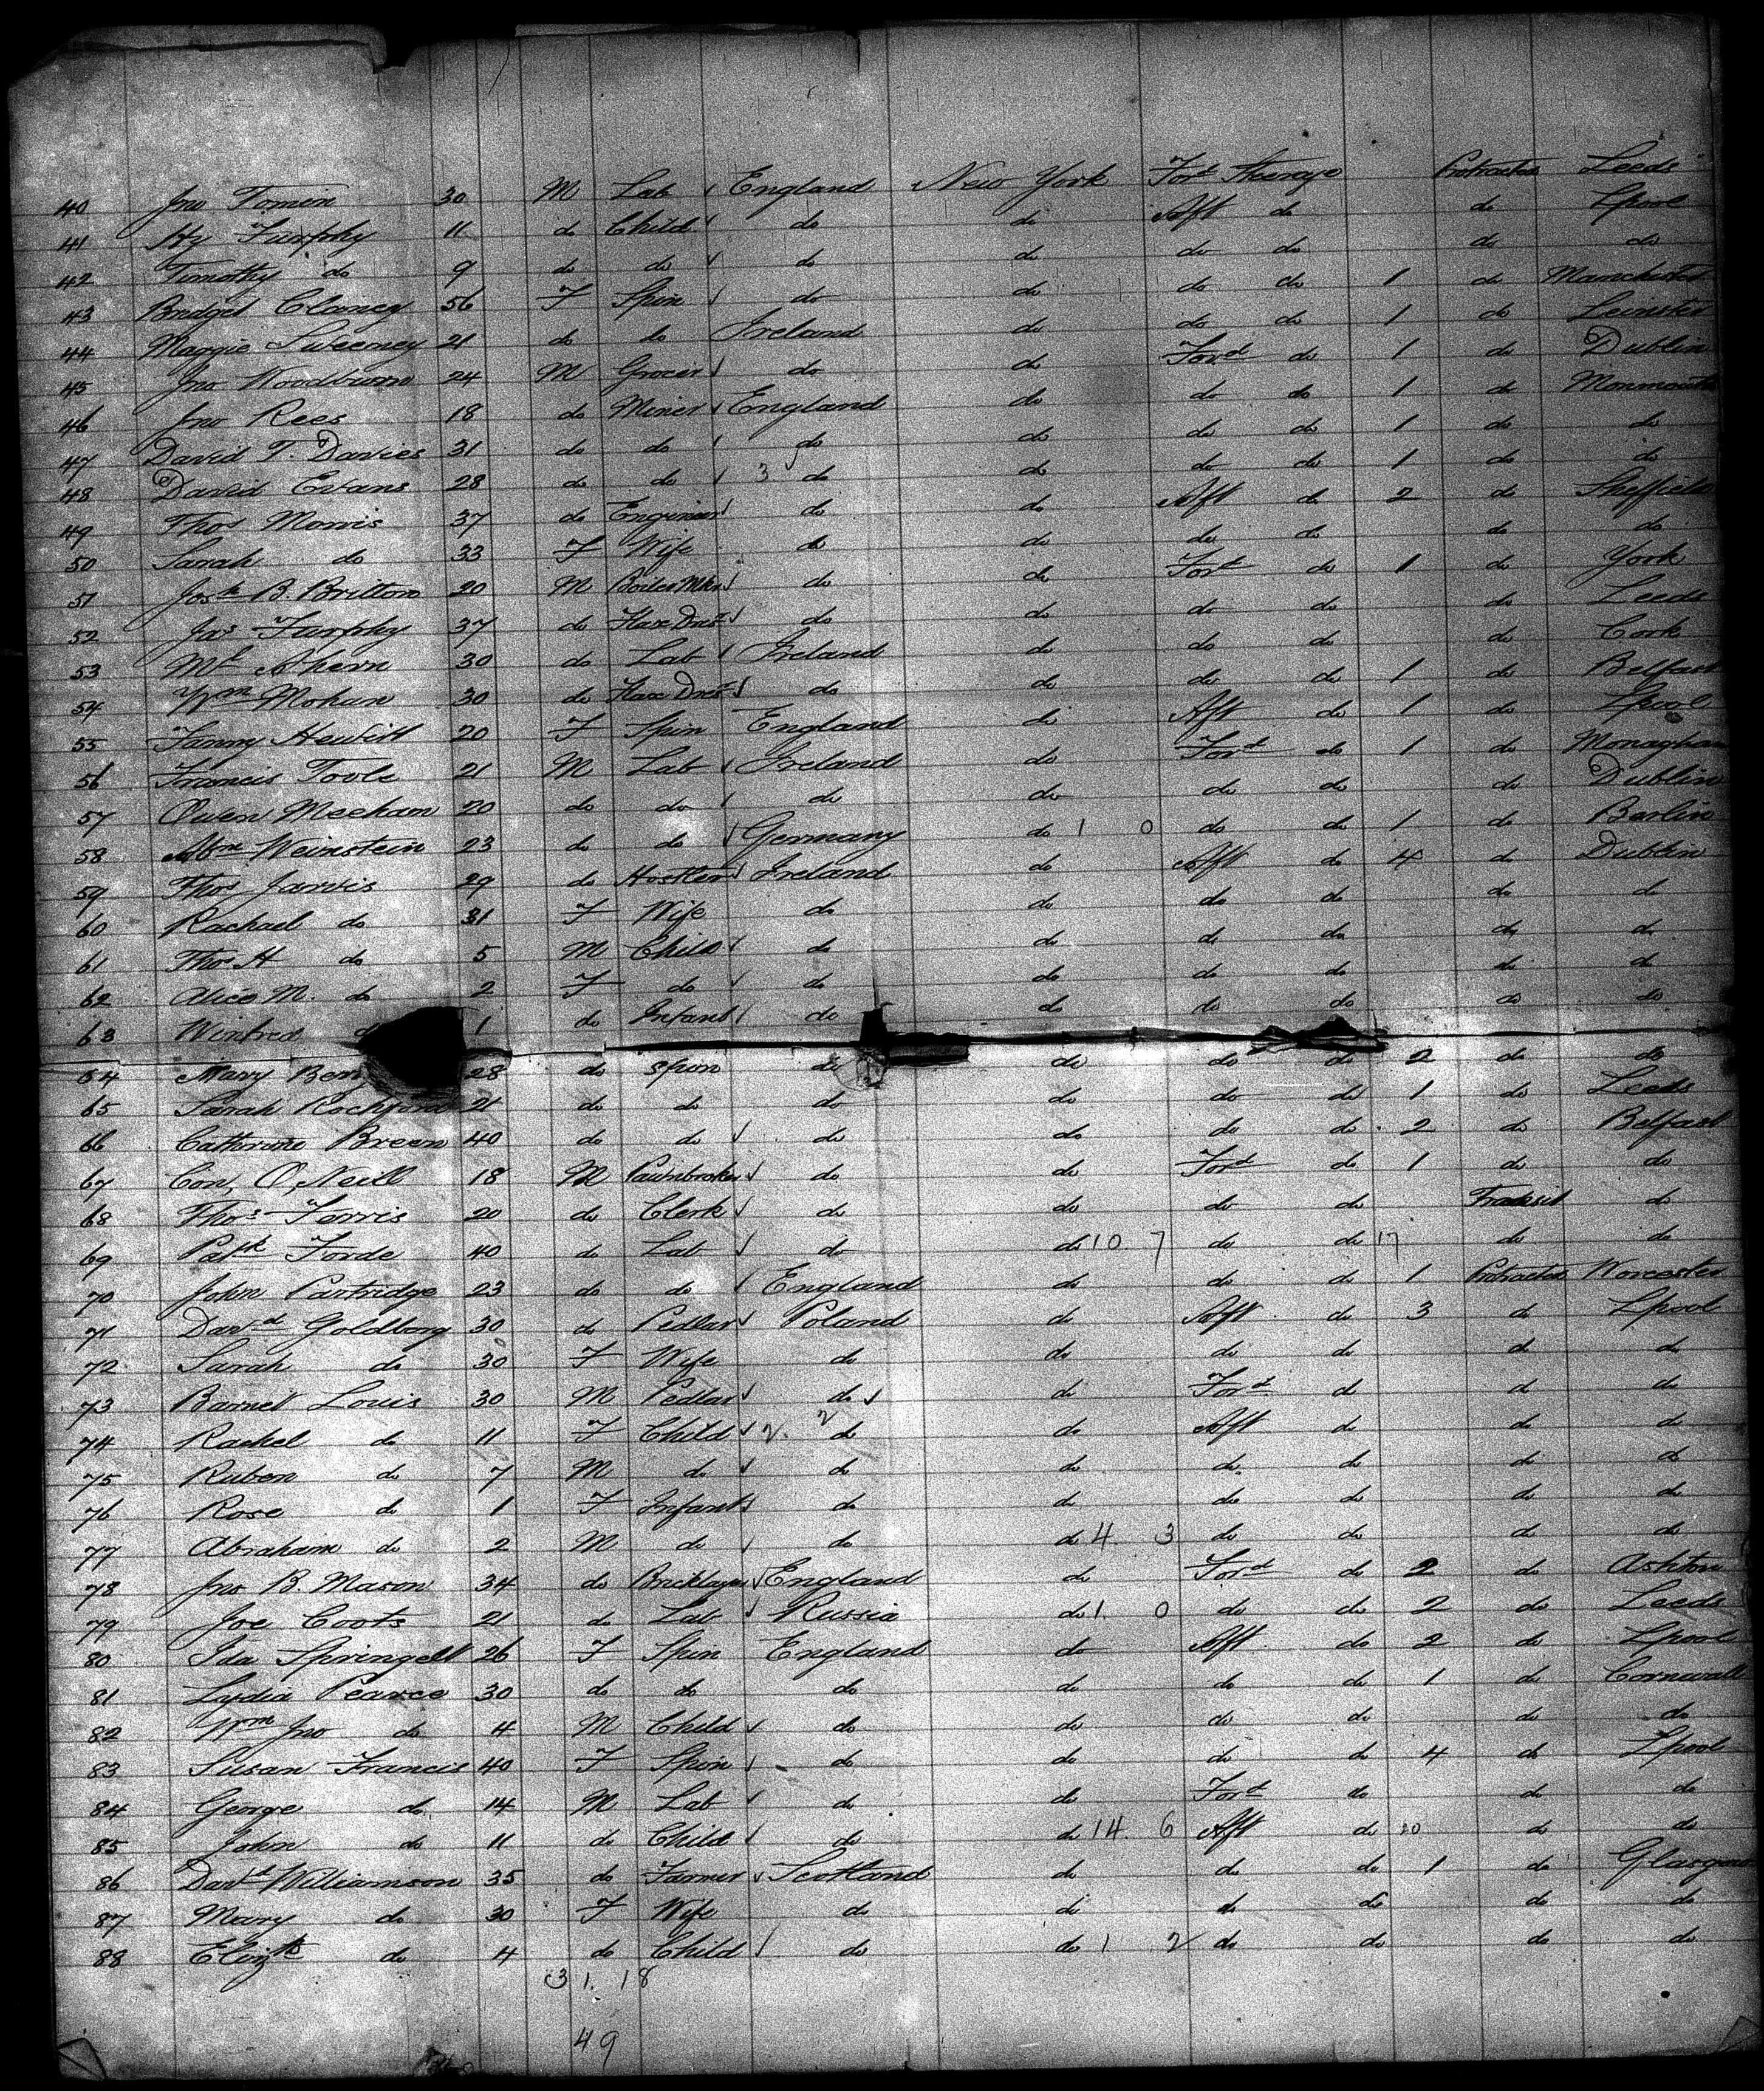 40 Jno Tomin 30 M Lab England New York Ford Steerage Protracted Leeds
41 Hy Furphy 11 do Child do do Aft do do Lpool
42 Timothy do 9 do do do do do do do do
43 Bridget Clancy 56 F Spin do do do do 1 do Manchester
44 Maggie Sweeney 21 do do Ireland do do do 1 do Leinster
45 Jno Woodburn 24 M Grocer do do Ford do 1 do Dublin
46 Jno Rees 18 do Miner England do do do 1 do Monmouth
47 David T. Davies 31 do do do do do do 1 do do
48 David Evans 28 do do 3 do do do do 1 do do
49 Thos Morris 37 do Engineer do do Aft do 2 do Sheffield
50 Sarah do 33 F Wife do do do do do do
51 Josh B. Britton 20 M Boiler Mkr do do Ford do 1 do York
52 Jas Furphy 37 do Flax Dresr do do do do do Leeds
53 Ml Ahern 30 do Lab Ireland do do do do Cork
54 Wm Mohun 30 do Flax Dresr do do do do 1 do Belfast
55 Fanny Hewitt 20 F Spin England do Aft do 1 do Lpool
56 Francis Toole 21 M Lab Ireland do Ford do 1 do Monaghan
57 Owen Meeham 20 do do do do do do do Dublin
58 Abm Weinstein 23 do do Germany do 1 0 do do 1 do Berlin
59 Thos Jarvis 29 do Hostler Ireland do Aft do 4 do Dublin
60 Rachael do 31 F Wife do do do do do do
61 Thos H do 5 M Child do do do do do do
62 Alice M. do 2 F do do do do do do do
63 Winfred do 1 do Infant do do do do do do
64 Mary 28 do Spin do do do do 2 do do
65 Sarah Rochford 21 do do do do do do 1 do Leeds
66 Catherine Breen 40 do do do do do do 2 do Belfast
67 Con, O'Neill 18 M Pawnbroker do do Ford do 1 do do
68 Thos Ferris 20 do Clerk do do do do Transit do
69 Patk Forde 40 do Lab do do 10 7 do do 17 do do
70 John Partridge 23 do do England do do do 1 Protracted Worcester
71 Davd Goldborg 30 do Pedlar Poland do Aft do 3 do Lpool
72 Sarah do 30 F Wife do do do do do do
73 Barnet Louis 30 M Pedlar do do Ford do do do
74 Rachel do 11 F Child 2. 2 do do Aft do do do
75 Ruben do 7 M do do do do do do do
76 Rose do 1 F Infant do do do do do do
77 Abraham do 2 M do do do 4. 3 do do do do
78 Jno B. Mason 34 do Bricklayer England do Ford do 2 do Ashton
79 Joe Coots 21 do Lab Russia do 1. 0 do do 2 do Leeds
80 Ida Springell 26 F Spin England do Aft do 2 do Lpool
81 Lydia Pearce 30 do do do do do do 1 do Cornwall
82 Wm Jno do 4 M Child do do do do do do
83 Susan Francis 40 F Spin do do do do 4 do Lpool
84 George do 14 M Lab do do Ford do do do
85 John do 11 do Child do do 14. 6 Aft do 20 do do
86 Davd Williamson 35 do Farmer Scotland do do do 1 do Glasgow
87 Mary do 30 F Wife do do do do do do
88 Elizth do 4 do Child do do 1 2 do do do do
31. 18
49